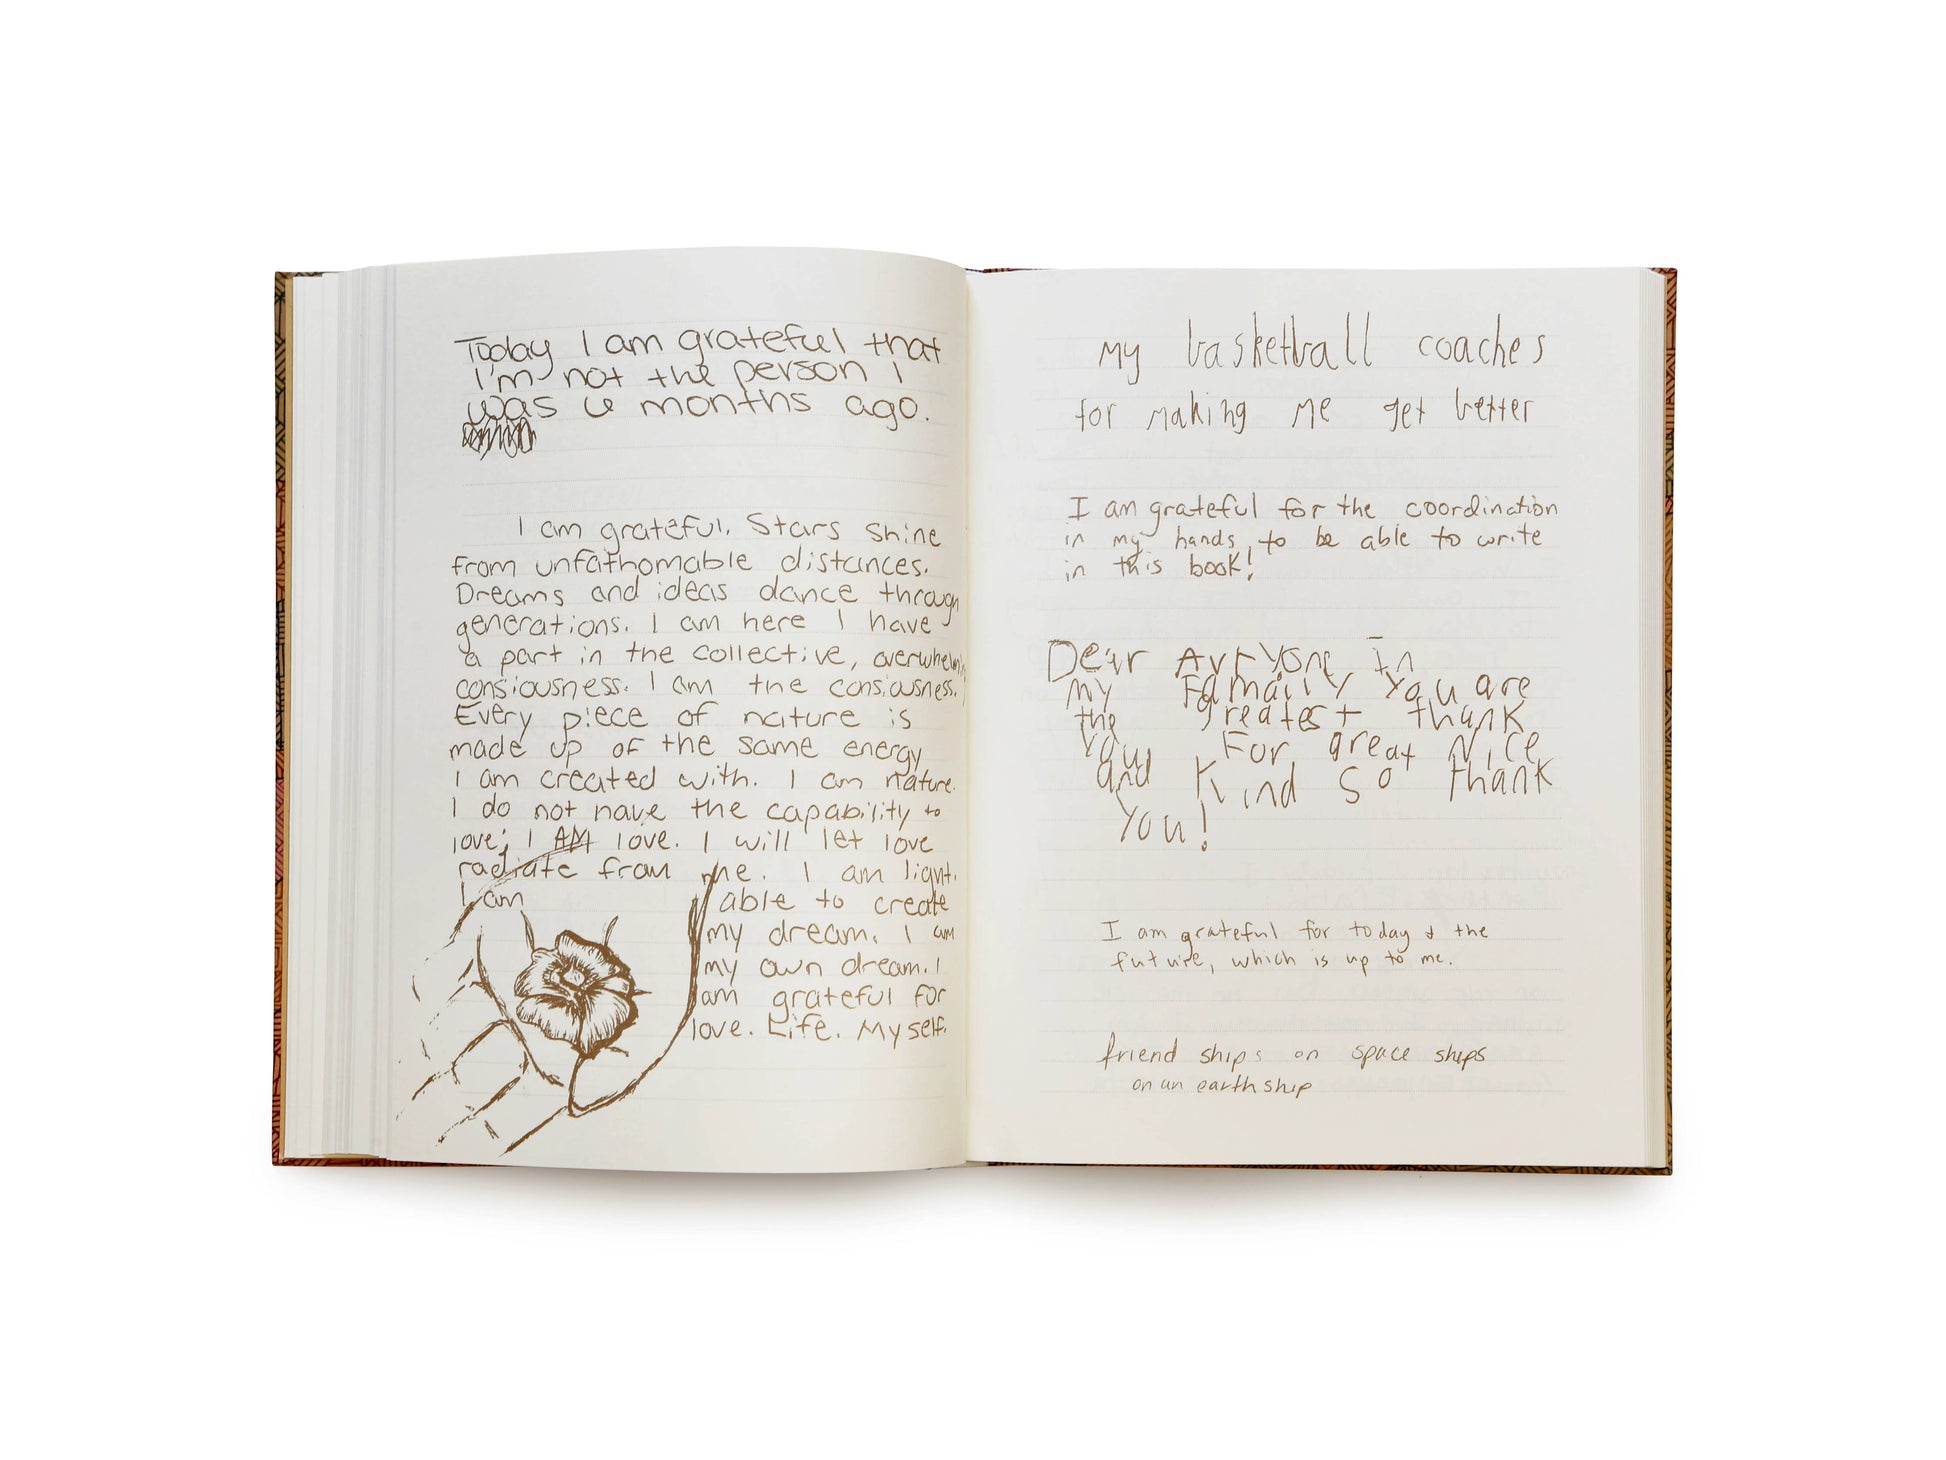 Today I am grateful that
I'm not the person I
was 6 months ago.
I am grateful. Stars shine
from unfathomable distances.
Dreams and ideas dance through
generations. I am here I have
a part in the collective, overwhelming
consiousness. I am the consiousness.
Every piece of nature is
made up of the same energy
I am created with. I am nature.
I do not have the capability to
love; I AM love. I will let love
radiate from me. I am light.
I am able to create
my dream. I am
my own dream. I
am grateful for
love. Life. Myself.
my basketball coaches
for making me get better
I am grateful for the coordination
in my hands, to be able to write
in this book!
Dear Avryone In
my Famaily you are
the greatest thank
you For great Nice
and Kind so thank
you!
I am grateful for today & the
future, which is up to me.
friend ships on space ships
on an earth ship